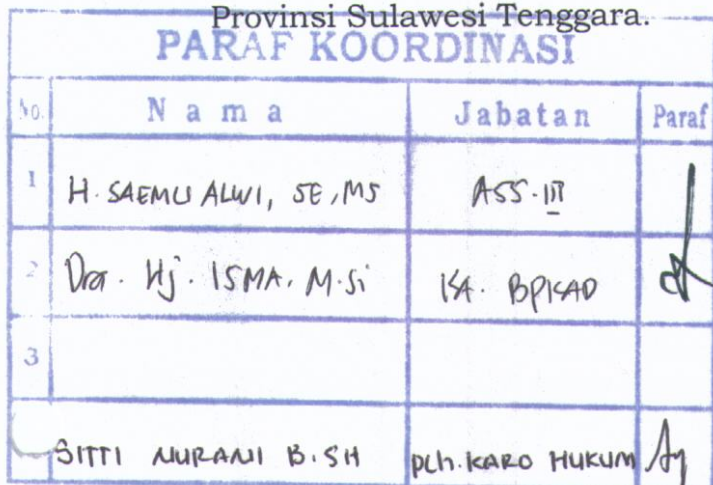 Provinsi Sulawesi Tenggara.
PARAF KOORDINASI
No. Nama Jabatan Paraf
1 H. SAEMU ALWI, SE, MS ASS. III
2 Dra. Hj. ISMA. M.Si KA. BPKAD
3
SITTI NURANI B. SH Plh. KARO HUKUM